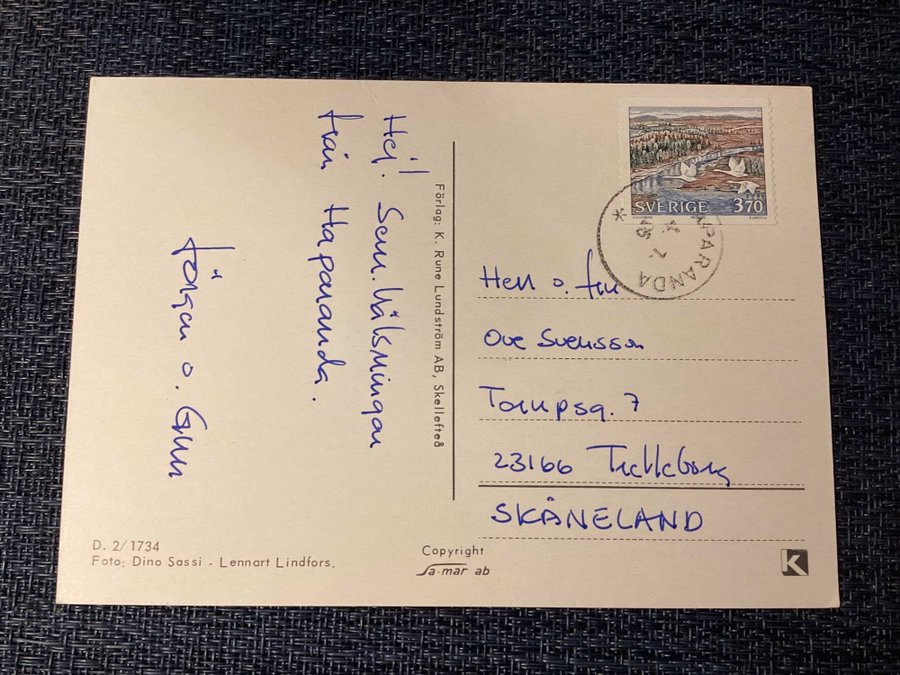 Hej! Som. hälsningar
från Haparanda.
Jörgen o. Gun
Förlag: K. Rune Lundström AB, Skellefteå
SVERIGE 3.70
HAPARANDA
Herr o. fru
Ove Svensson
Torupsg. 7
23166 Trelleborg
SKÅNELAND
D. 2/1734
Foto: Dino Sassi - Lennart Lindfors.
Copyright
Sa-mar ab
K